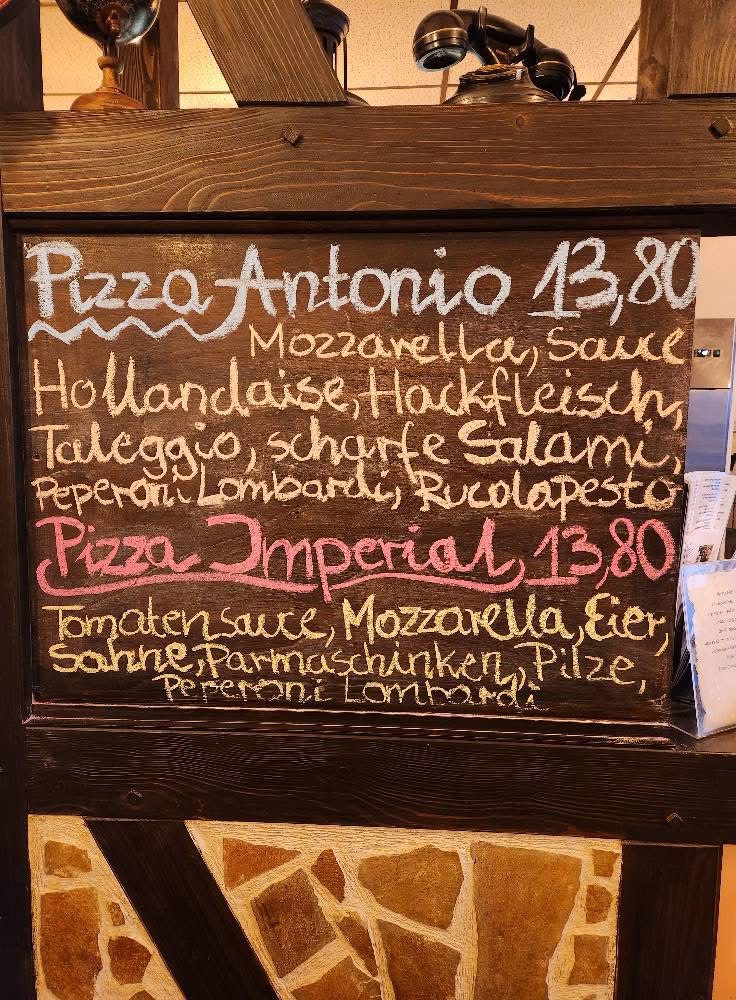 Pizza Antonio 13,80
Mozzarella, Sauce
Hollandaise, Hackfleisch,
Taleggio, scharfe Salami,
Peperoni Lombardi, Rucolapesto
Pizza Imperial 13,80
Tomatensauce, Mozzarella, Eier,
Sahne, Parmaschinken, Pilze,
Peperoni Lombardi